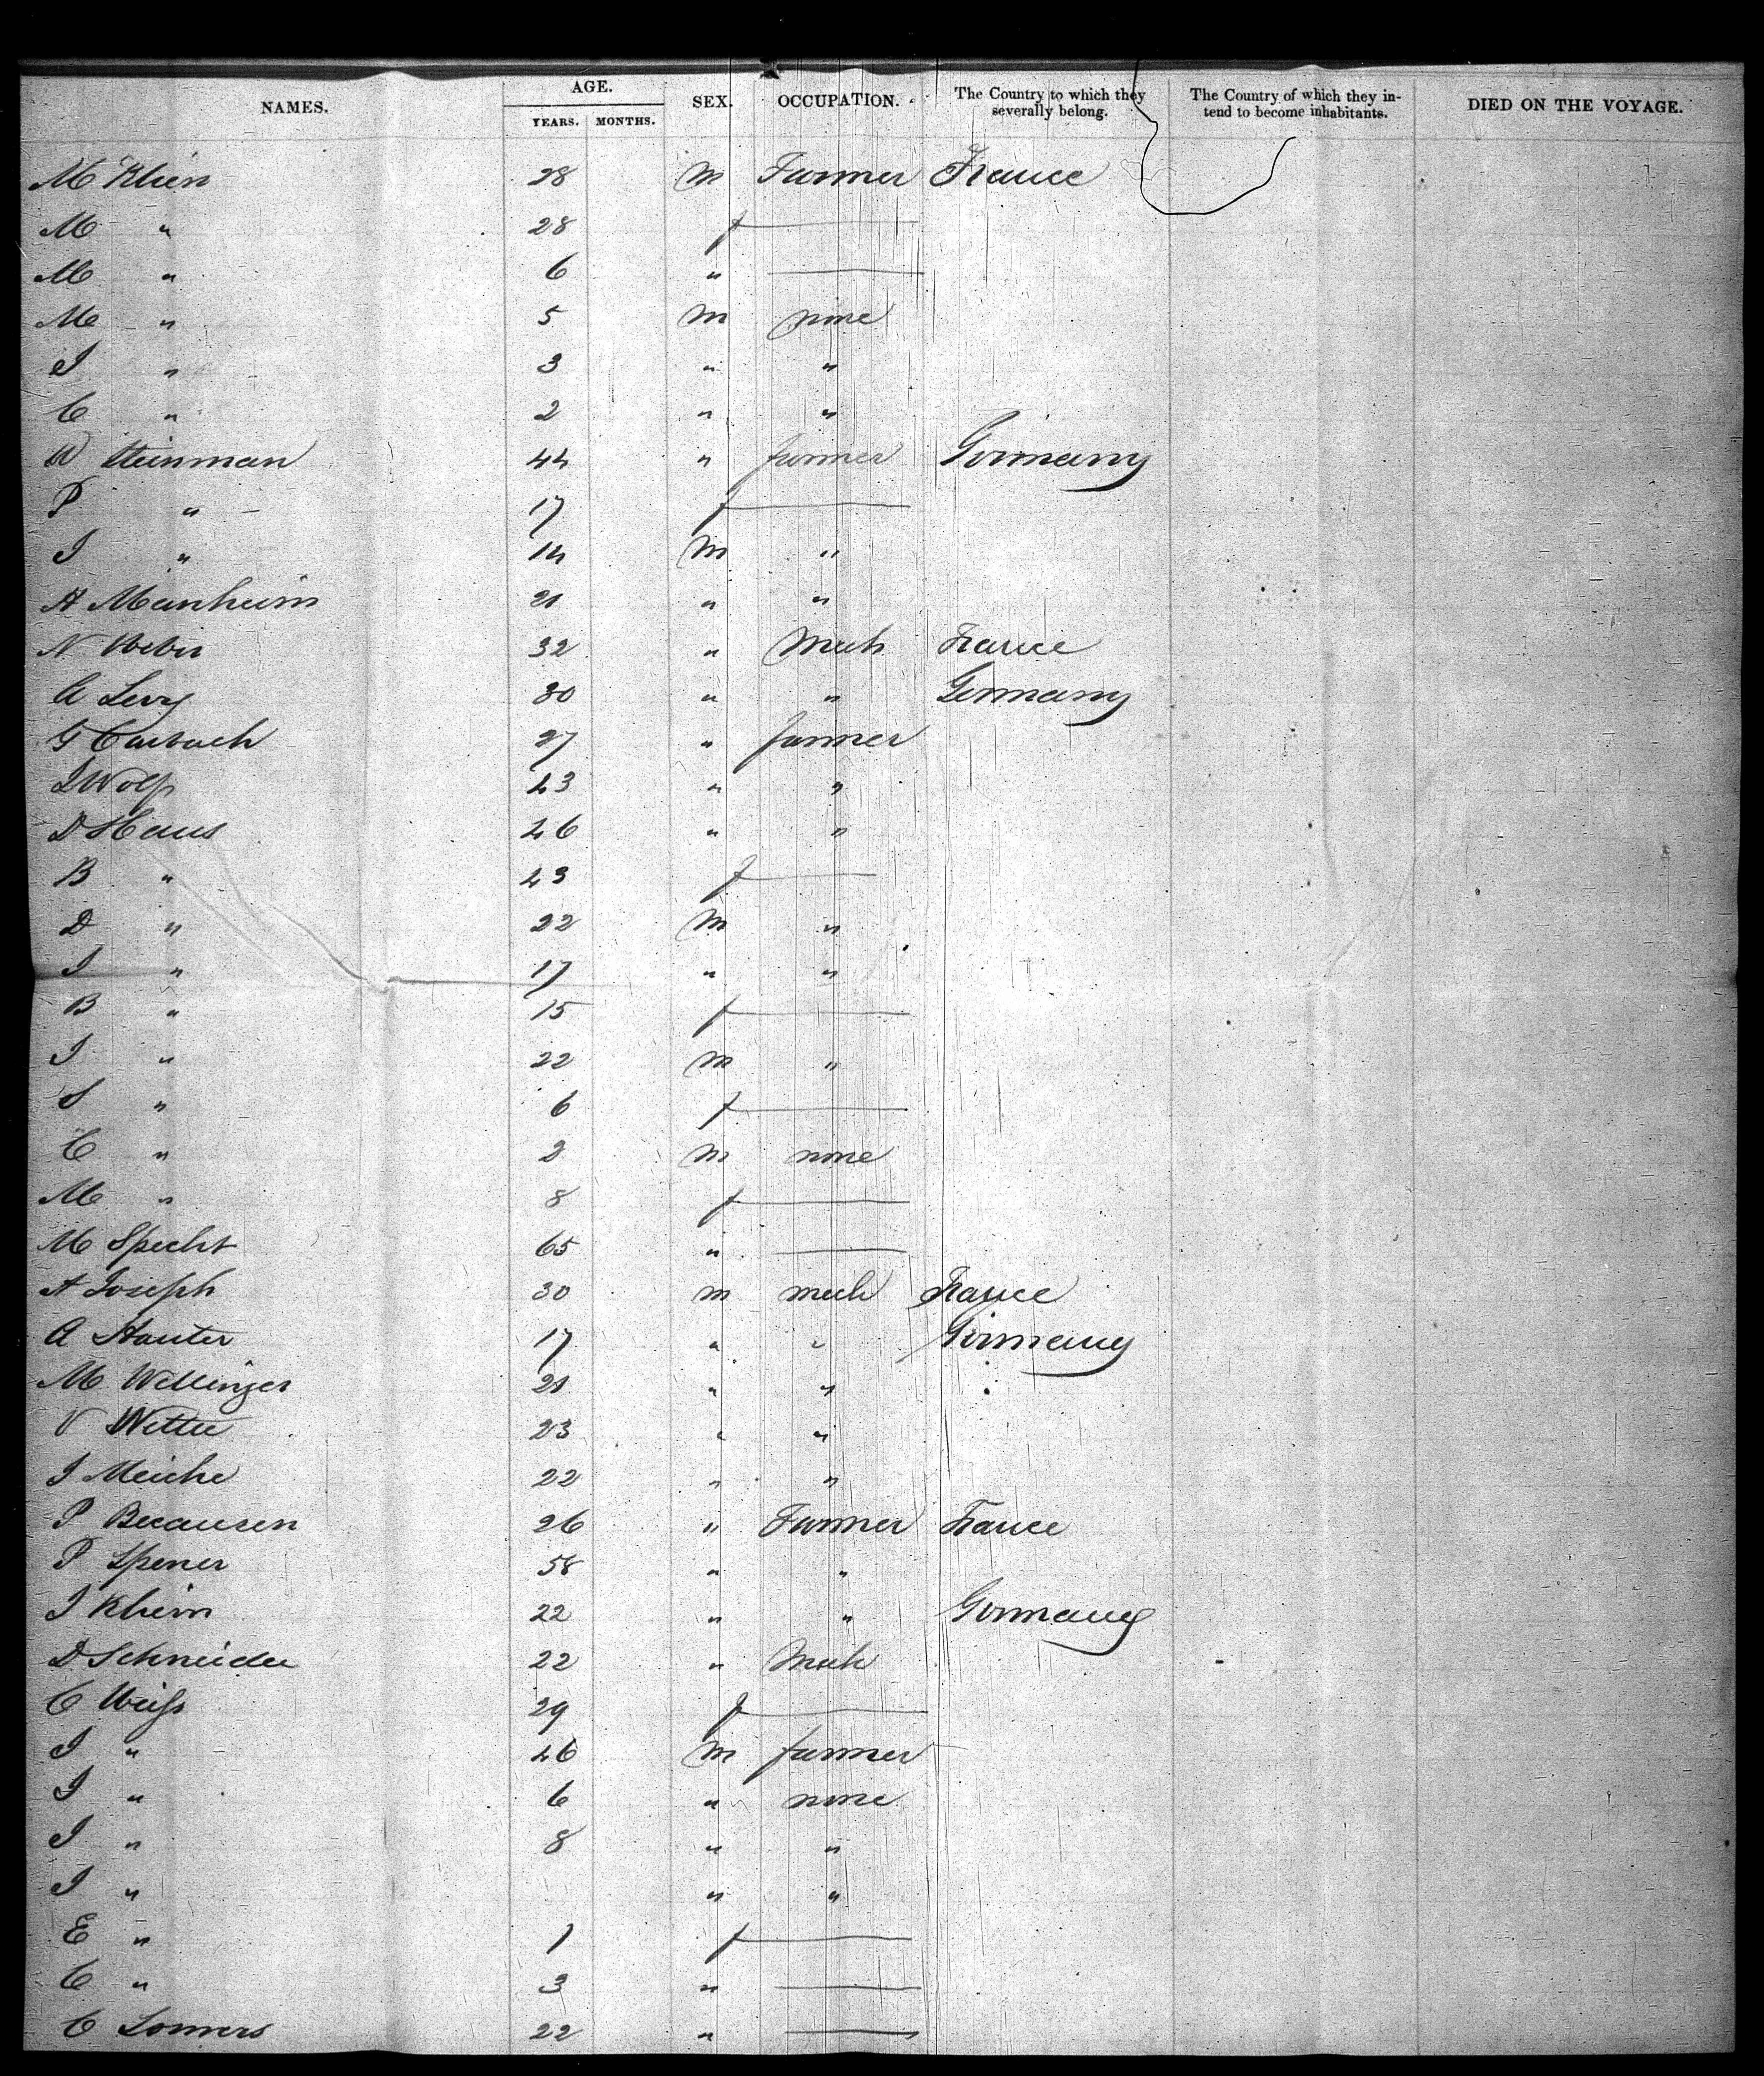 NAMES. AGE. SEX. OCCUPATION. The Country to which they severally belong. The Country of which they in-tend to become inhabitants. DIED ON THE VOYAGE.
YEARS. MONTHS.
M Klien 28 m Farmer France
M " 28 f
M " 6 "
M " 5 m none
J " 3 " "
C " 2 " "
Steinman 44 " farmer Germany
P " 17 f
J " 14 m "
A Manheim 21 " "
N Weber 32 " Mech France
A Levy 30 " " Germany
G Carbach 27 " farmer
J Wolf 43 " "
D Haus 46 " "
B " 43 f
D " 22 m "
J " 17 " "
B " 15 f
J " 22 m "
S " 6 f
C " 2 m none
M " 8 f
M Specht 65 "
A Joseph 30 m mech France
A Stauter 17 " " Germany
M Wellinger 21 " "
V Wettee 23 " "
J Meiche 22 " "
P Becausen 26 " Farmer France
P Spener 58 " "
J Kleim 22 " " Germany
D Schneider 22 " Mech
C Weiss 29 f
J " 46 m farmer
J " 6 " none
J " 8 " "
J " " "
E " 1 f
C " 3 "
C Somers 22 "